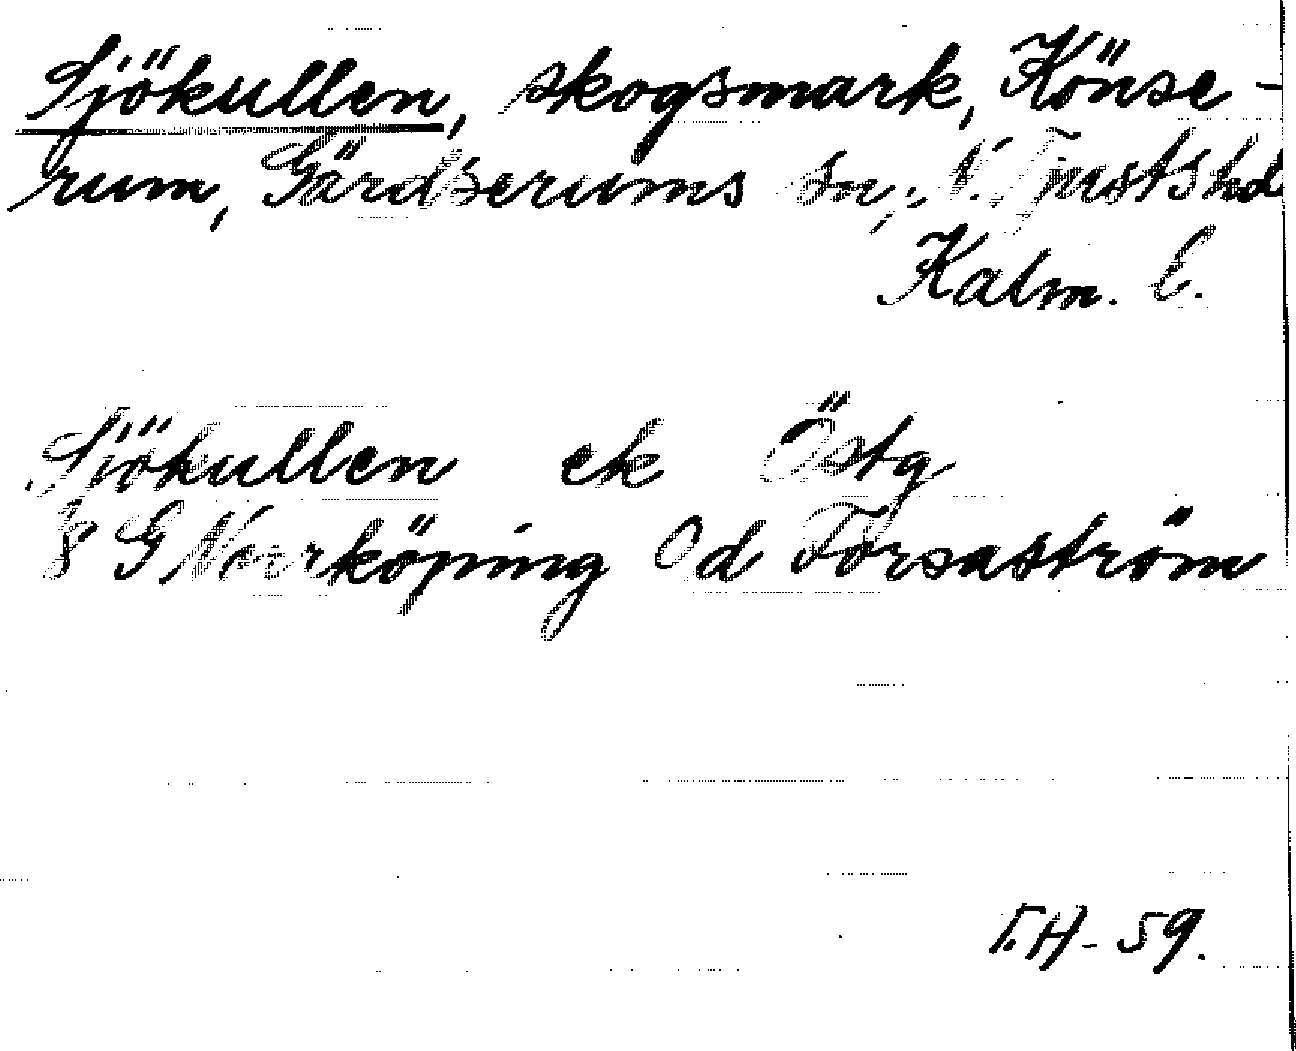 Sjökullen, skogsmark, Könse-
rum, Gärdserums sn, N. Tjusts hd
Kalm. l.
Sjökullen ek Östg
8 G Norrköping Od Forsaström
T.H - 59.